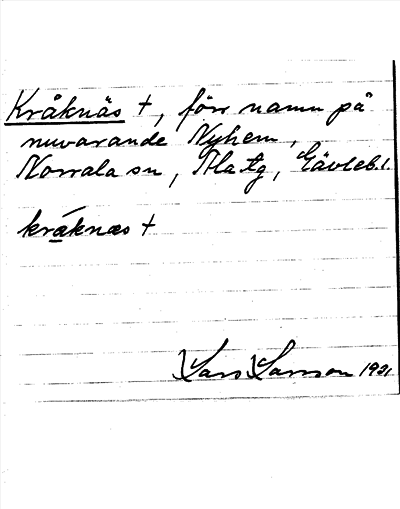 Kråknäs †, förr namn på
nuvarande Nyhem,
Norrala sn, Ala tg, Gävleb. l.
kråknæs †
Lars Larsson 1921